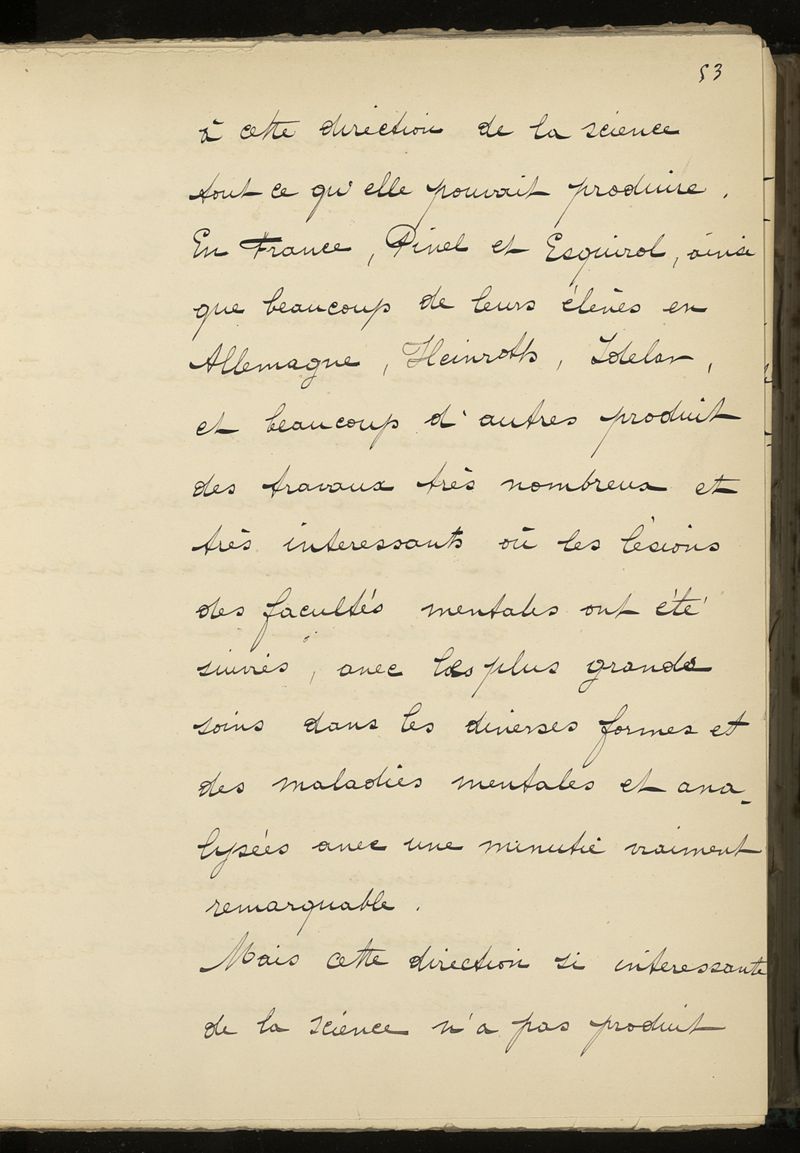 53
à cette direction de la science
tout ce qu'elle pouvait produire.
En France, Pinel et Esquirol, ainsi
que beaucoup de leurs élèves en
Allemagne, Heinroth, Ideler,
et beaucoup d'autres produit
des travaux très nombreux et
très interessants où les lésions
des facultés mentales ont été
suivies, avec les plus grands
soins dans les diverses formes et
des maladies mentales et ana-
lysées avec une minutie vraiment
remarquable.
Mais cette direction si interessante
de la science n'a pas produit